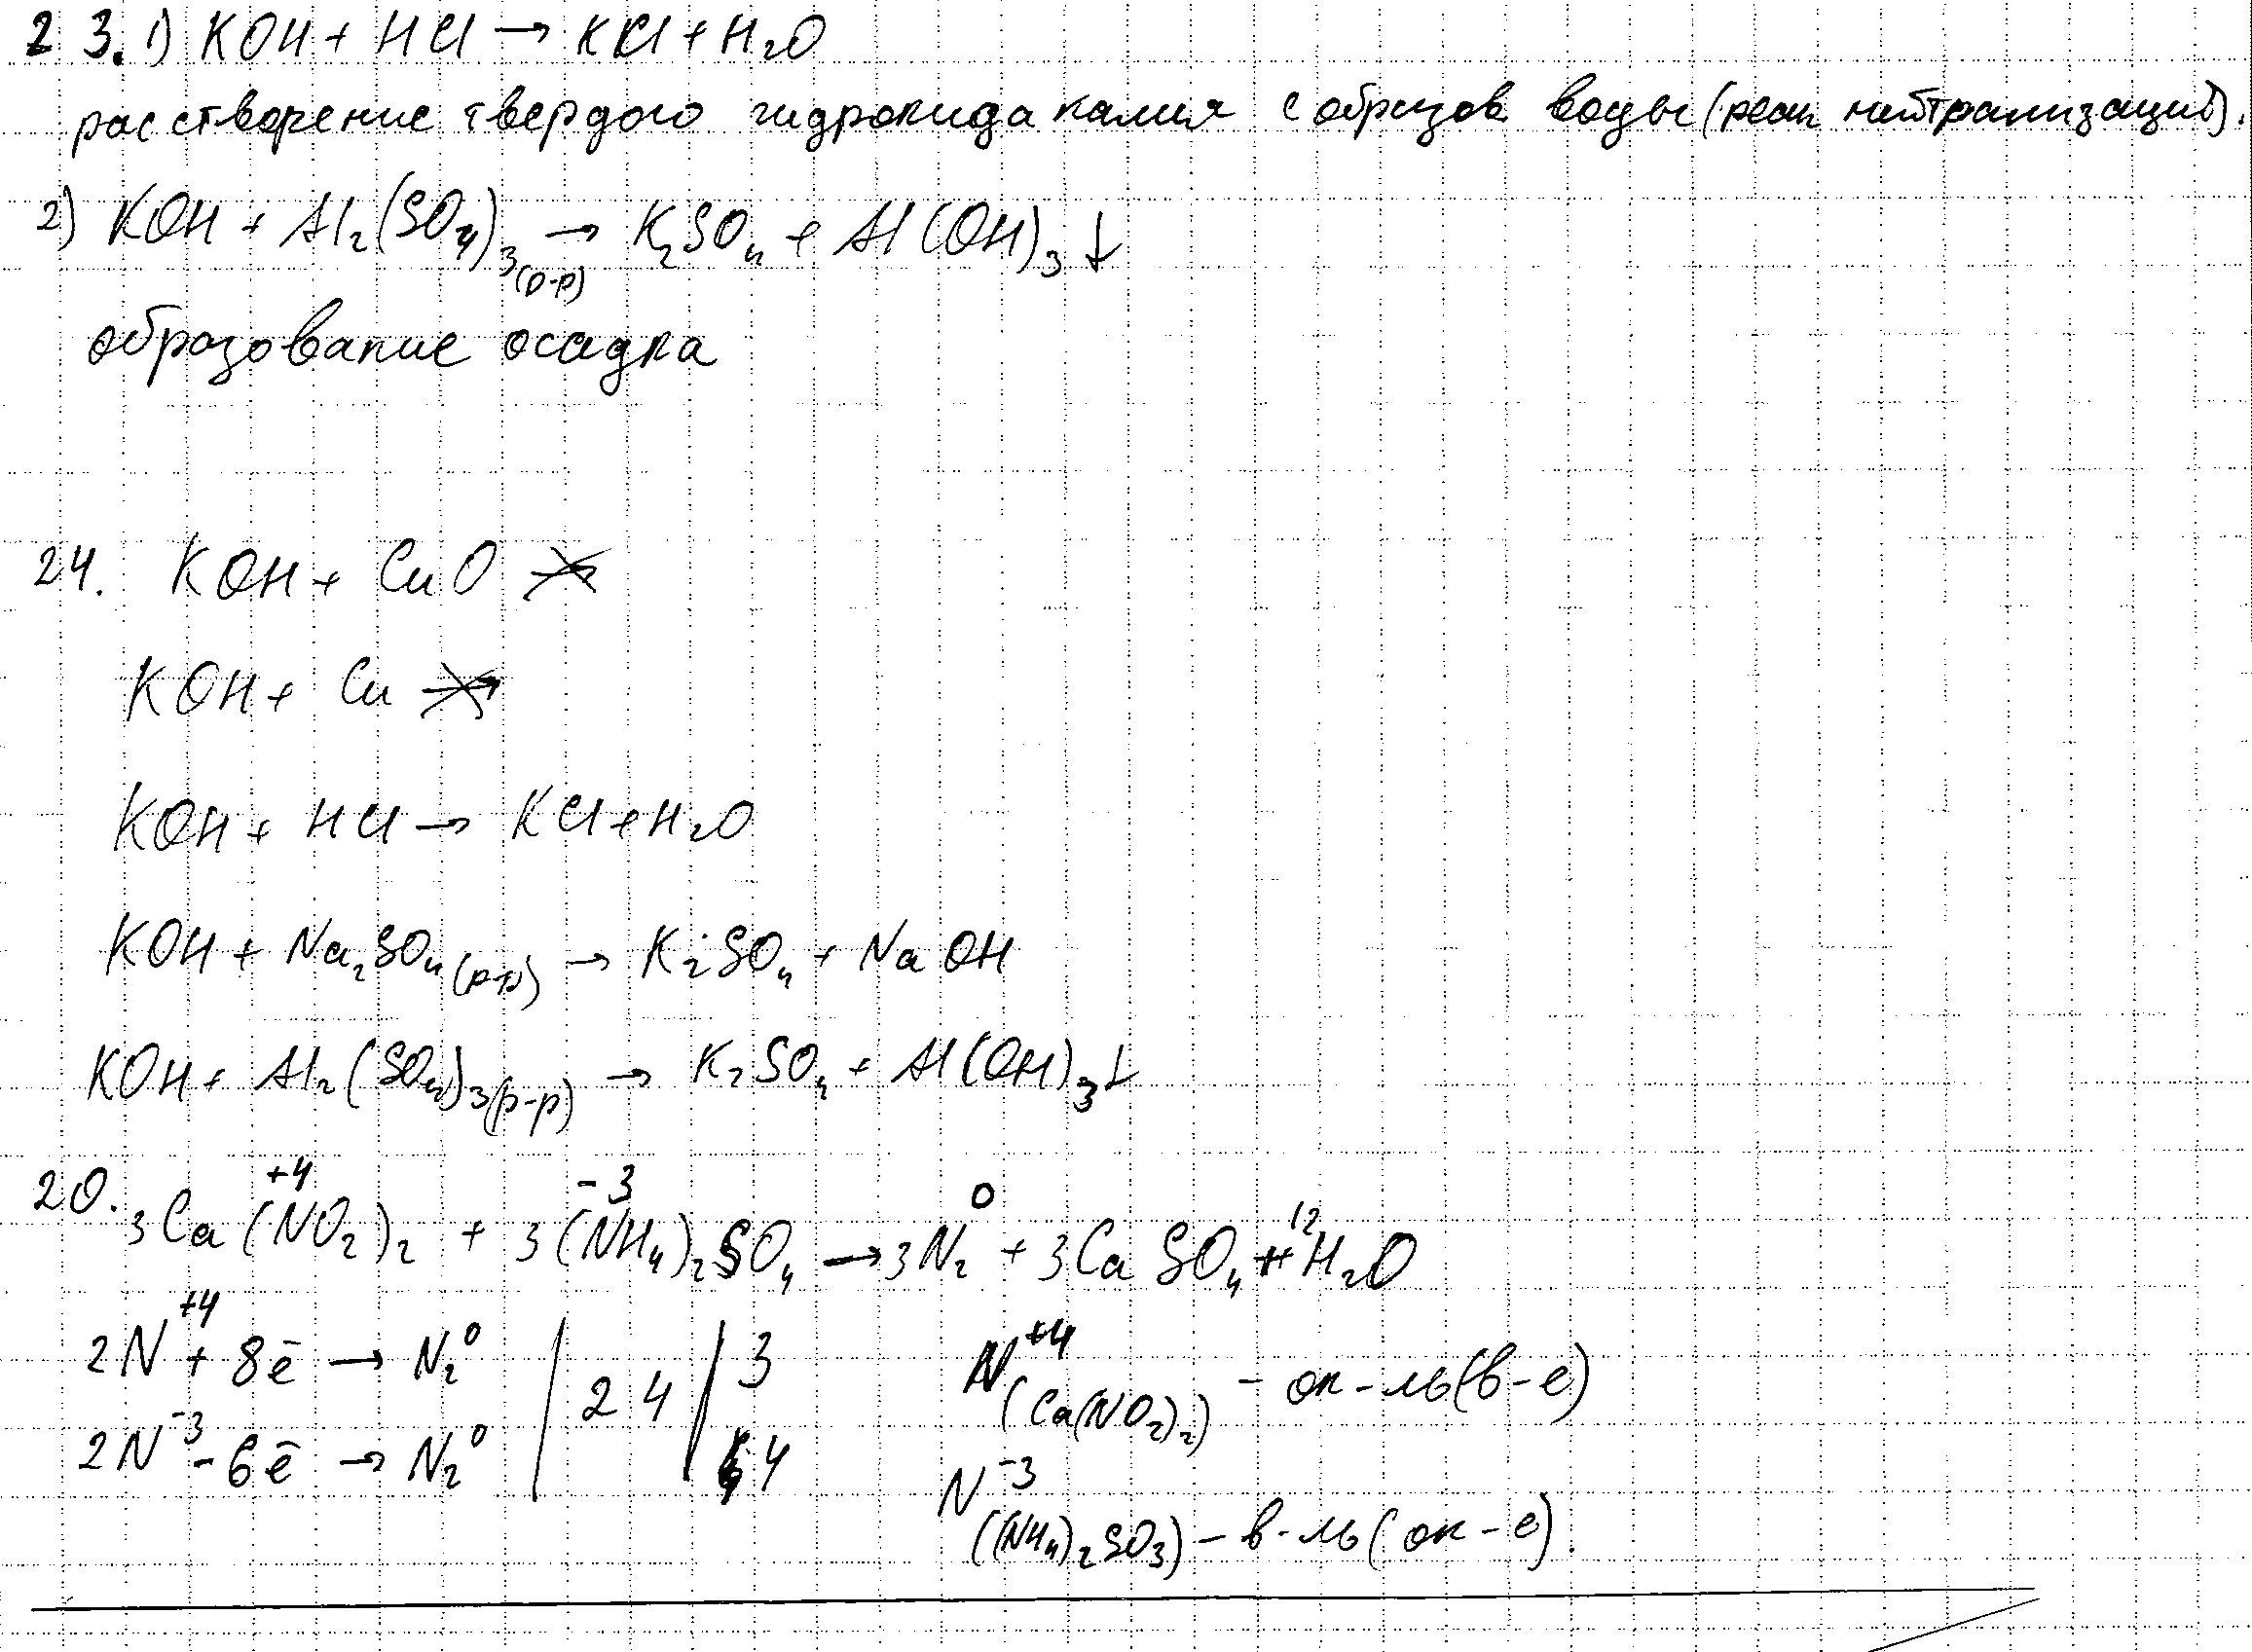 23. 1) KOH + HCl → KCl + H₂O
расстворение твердого гидроксида калия с образов воды (реак нейтрализаций).
2) KOH + Al₂(SO₄)₃(р-р) → K₂SO₄ + Al(OH)₃↓
образование осадка
24. KOH + CuO ↛
KOH + Cu ↛
KOH + HCl → KCl + H₂O
KOH + Na₂SO₄(р-р) → K₂SO₄ + NaOH
KOH + Al₂(SO₄)₃(р-р) → K₂SO₄ + Al(OH)₃↓
20. 3Ca(N⁺⁴O₂)₂ + 3(N⁻³H₄)₂SO₄ → 3N₂⁰ + 3CaSO₄ + 12H₂O
2N⁺⁴ + 8ē → N₂⁰ | 24 | 3
2N⁻³ - 6ē → N₂⁰ | | 4
N⁺⁴(Ca(NO₂)₂) - ок-ль (в-е)
N⁻³((NH₄)₂SO₃) - в-ль (ок-е).